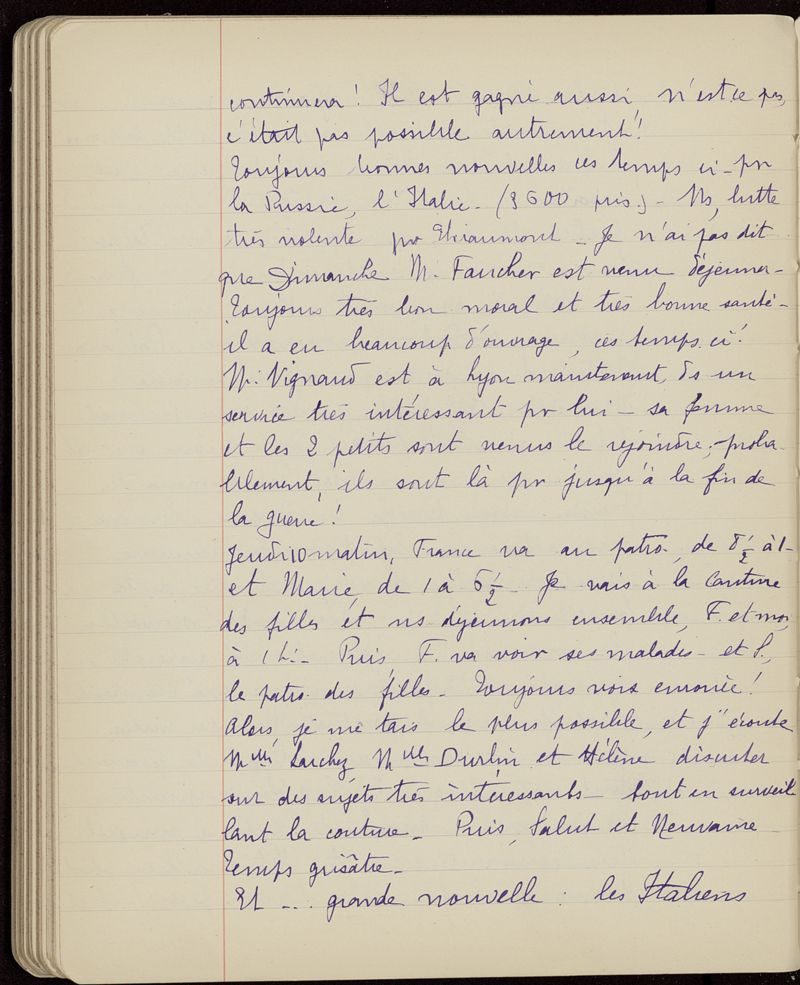 continuera ! Il est gagné aussi, n'est ce pas,
c'était pas possible autrement !
Toujours bonnes nouvelles ces temps ci - pr
la Russie, l'Italie - (3600 pris.) - Ms, lutte
très violente pr Thiaumont - Je n'ai pas dit
que Dimanche M. Faucher est venu déjeuner -
Toujours très bon moral et très bonne santé -
il a eu beaucoup d'ouvrage, ces temps ci !
M. Vignaud est à Lyon maintenant, ds un
service très intéressant pr lui - sa femme
et les 2 petits sont venus le rejoindre ; - proba-
blement, ils sont là pr jusqu'à la fin de
la guerre !
Jeudi 10 matin, France va au patro, de 8 1/2 à 1 -
et Marie, de 1 à 6 1/2 - Je vais à la couture
des filles et ns déjeunons ensemble, F. et moi,
à 1 h. - Puis, F. va voir ses malades - et S.,
le patro des filles - Toujours voix enrouée !
Alors, je me tais le plus possible, et j'écoute
Mlle Larchez, Mlle Durlin et Hélène discuter
sur des sujets très intéressants - tout en surveil
lant la couture - Puis, Salut et Neuvaine -
Temps grisâtre -
Et ... grande nouvelle : les Italiens